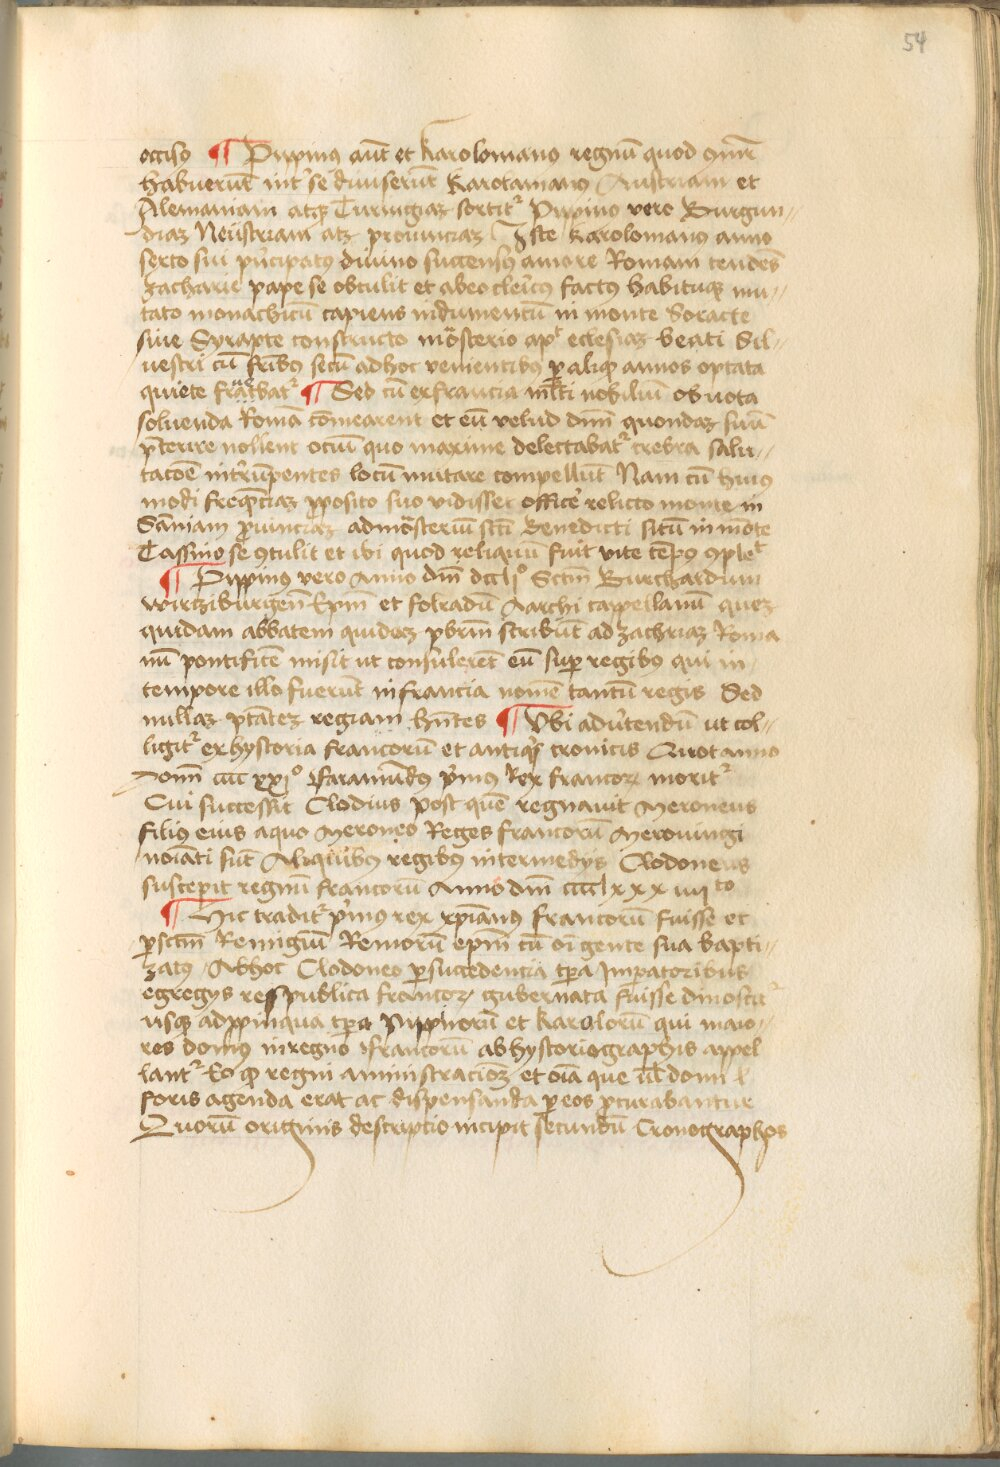 54
occiso ¶ Pippinus aūt et karolomanus regnū quod cōmūe
habuerūt int' se diuiserūt karolamanus Austriam et
Alemaniam atqꝫ Turingiaꝫ sortit᷑ Pipino vero Burgun-
diaꝫ Neustriam atqꝫ prouinciaꝫ Iste karolomanus anno
sexto sui pⁱncipatus diuino succensus amore Romam tendēs
zacharie pape se obtulit et abeo clericus factus habituqꝫ mu-
tato monachicū capiens indumentū in monte Soracte
siue Syrapte constructo mōsterio apᵈ eclesiaꝫ beati Sil-
uestri cū fribus secū adhoc venientibus ꝑ aliqꝫ annos optata
quiete
¶ Sed cū ex francia m̄lti nobiliū ob vota
soluenda Romā cōmearent et eū velud dn̄m quondaꝫ suū
p̄terire nollent ociū quo maxime delectabat᷑ crebra salu-
tacōe int'rūpentes locū mutare compellūt Nam cū huius
modi freqn̄ciaꝫ ꝓposito suo vidisset officē relicto monte in
Sāniam ꝓuinciaꝫ ad mōsteriū sctī Benedicti sitū in mōte
Cassino se ꝯtulit et ibi quod reliquū fuit vite tēpus ꝯpleᵗ
¶ Pippinus vero Anno dn̄i dccljº Sctm̄ Burchardum
wirtziburgen̄ Epm̄ et folradū Aarchi cappellanū queꝫ
quidam abbatem quidaꝫ pbrm̄ scribūt ad zachriaꝫ Roma
nū pontificē misit ut consulerēt eū suꝑ regibus qui in
tempore illo fuerūt in francia nomē tantū regis Sed
nullaꝫ ptātēꝫ regiam hn̄tes ¶ Vbi adu'tendū ut col-
ligit᷑ ex hystoria francorū et antiqⁱs cronicis Quot anno
Domī cccc xxjº Faramūdus pⁱmus Rex francoꝝ morit᷑
Cui successit Clodius post quē regnauit Meroneus
filius eius aquo Meroneo Reges francorū Merouingi
noīati sūt Aliquibus regibus intermedys Clodoneus
suscepit regnū francorū Anno dn̄i cccclxxxiiijto
¶ Hic tradit᷑ pⁱmus rex xp̄ianus francorū fuisse et
ꝑ sctm̄ Remigiū Remorū epm̄ cū oī gente sua bapti-
zatus Abhoc Clodoneo ꝑ succedencia tꝑa Imꝑatoribus
egregys respublica francoꝝ gubernata fuisse dinoscit᷑
usqꝫ ad ꝓpinqua tꝑa Pippinorū et karolorū qui maio-
res domus inregno francorū ab hystoriographis appel
lant᷑ Eo qꝫ regni aministracioēꝫ et oīa que vl domi vl
foris agenda erāt ac dispensanda ꝑ eos ꝓcurabantur
Quorū originis descriptio incipit secundū Cronographos